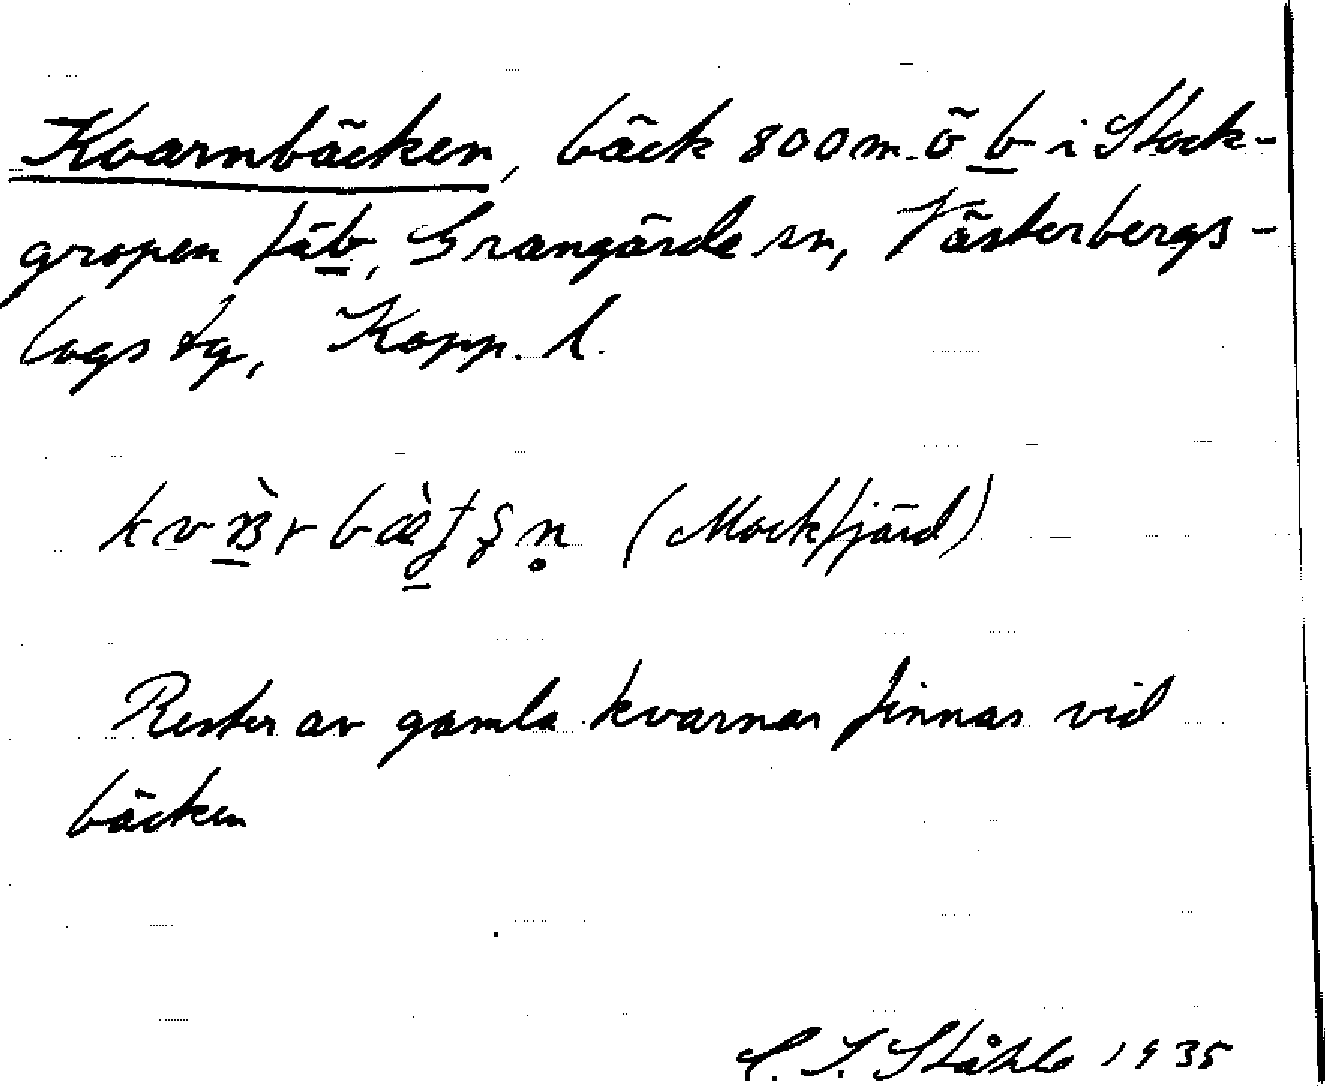 Kvarnbäcken, bäck 800 m ö b i Stock-
gropen fäb, Grangärde sn, Västerbergs-
lags tg, Kopp. l.
(Mockfjärd)
Rester av gamla kvarnar finnas vid
bäcken
C. I. Ståhle 1935